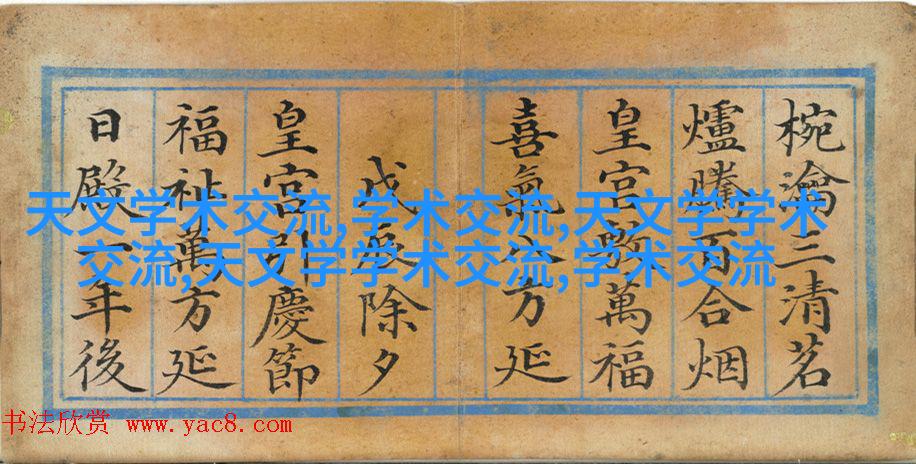 椀瀹三清茗
爐騰百合烟
皇宮萬福
喜氣方延
戊除夕
皇宮引慶節
福祉萬方延
日殿一年後
天文学术交流,学术交流,天文学学术
交流,天文学学术交流,学术交流
书法欣赏 www.yac8.com